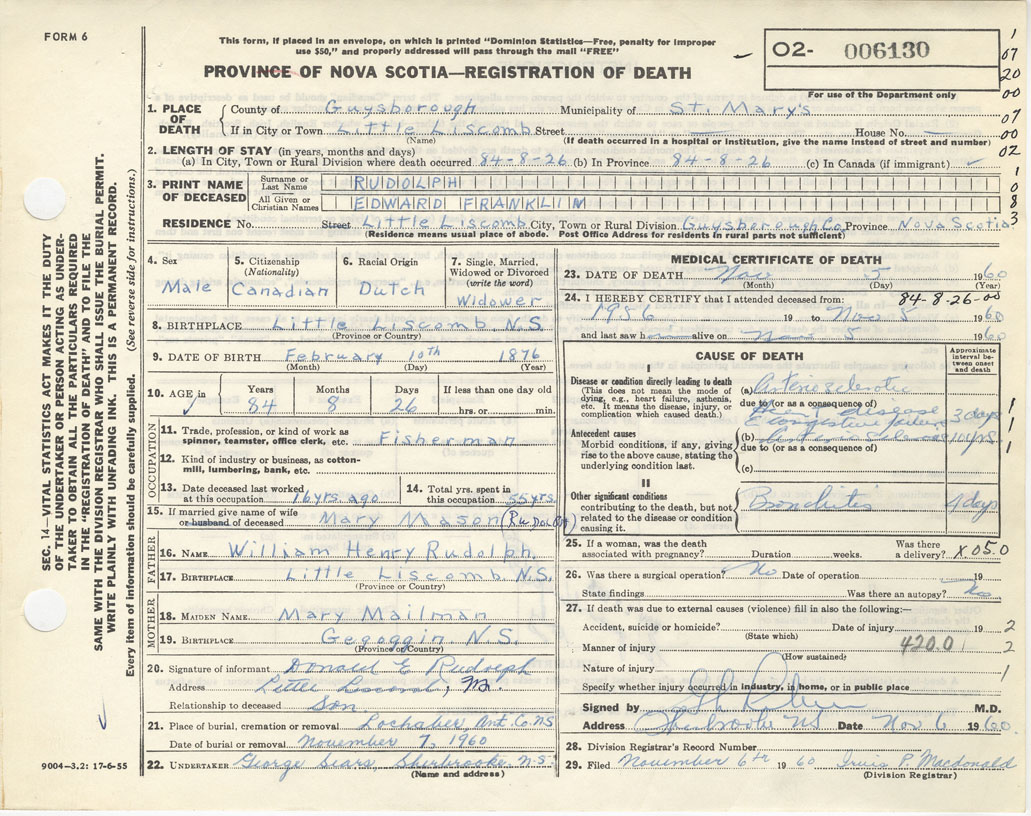 FORM 6
This form, if placed in an envelope, on which is printed "Dominion Statistics—Free, penalty for improper
use $50," and properly addressed will pass through the mail "FREE"
PROVINCE OF NOVA SCOTIA—REGISTRATION OF DEATH
O2- 006130
For use of the Department only
1
07
20
00
07
00
02
1
0
8
3
SEC. 14—VITAL STATISTICS ACT MAKES IT THE DUTY
OF THE UNDERTAKER OR PERSON ACTING AS UNDER-
TAKER TO OBTAIN ALL THE PARTICULARS REQUIRED
IN THE "REGISTRATION OF DEATH" AND TO FILE THE
SAME WITH THE DIVISION REGISTRAR WHO SHALL ISSUE THE BURIAL PERMIT.
WRITE PLAINLY WITH UNFADING INK. THIS IS A PERMANENT RECORD.
Every item of information should be carefully supplied. (See reverse side for instructions.)
1. PLACE OF DEATH
County of Guysborough Municipality of St. Mary's
If in City or Town Little Liscomb Street House No.
(Name) (If death occurred in a hospital or institution, give the name instead of street and number)
2. LENGTH OF STAY (in years, months and days)
(a) In City, Town or Rural Division where death occurred 84-8-26 (b) In Province 84-8-26 (c) In Canada (if immigrant)
3. PRINT NAME OF DECEASED
Surname or Last Name RUDOLPH
All Given or Christian Names EDWARD FRANKLIM
RESIDENCE No. Street Little Liscomb City, Town or Rural Division Guysborough Co Province Nova Scotia
(Residence means usual place of abode. Post Office Address for residents in rural parts not sufficient)
4. Sex Male
5. Citizenship (Nationality) Canadian
6. Racial Origin Dutch
7. Single, Married, Widowed or Divorced (write the word) Widower
8. BIRTHPLACE Little Liscomb N.S.
(Province or Country)
9. DATE OF BIRTH February 10th 1876
(Month) (Day) (Year)
10. AGE in Years 84 Months 8 Days 26 If less than one day old hrs. or min.
OCCUPATION
11. Trade, profession, or kind of work as spinner, teamster, office clerk, etc. Fisherman
12. Kind of industry or business, as cotton-mill, lumbering, bank, etc.
13. Date deceased last worked at this occupation 16 yrs. ago
14. Total yrs. spent in this occupation 55 yrs.
15. If married give name of wife or husband of deceased Mary Mason (Rudolph)
FATHER
16. NAME William Henry Rudolph.
17. BIRTHPLACE Little Liscomb N.S.
(Province or Country)
MOTHER
18. MAIDEN NAME Mary Mailman
19. BIRTHPLACE Gegoggin N.S.
(Province or Country)
20. Signature of informant Donald E Rudolph
Address Little Liscomb, NS.
Relationship to deceased Son.
21. Place of burial, cremation or removal Lochaber Ant. Co. NS
Date of burial or removal November 7, 1960
22. UNDERTAKER George Sears Sherbrooke N.S.
(Name and address)
9004—3.2: 17-6-55
MEDICAL CERTIFICATE OF DEATH
23. DATE OF DEATH Nov 5 1960
(Month) (Day) (Year)
24. I HEREBY CERTIFY that I attended deceased from: 84-8-26-00
1956 19 to Nov 5 1960
and last saw h alive on Nov 5 1960
CAUSE OF DEATH
Approximate interval between onset and death
I
Disease or condition directly leading to death
(This does not mean the mode of dying, e.g., heart failure, asthenia, etc. It means the disease, injury, or complication which caused death.)
(a) Arteriosclerotic
due to (or as a consequence of)
Heart disease
congestive failure 3 days
Antecedent causes
Morbid conditions, if any, giving rise to the above cause, stating the underlying condition last.
(b) 10 yrs
due to (or as a consequence of)
(c)
II
Other significant conditions
contributing to the death, but not related to the disease or condition causing it.
Bronchitis 4 days
1
1
1
25. If a woman, was the death associated with pregnancy? Duration weeks. Was there a delivery? X05.0
26. Was there a surgical operation? No Date of operation 19
State findings Was there an autopsy? No
27. If death was due to external causes (violence) fill in also the following:—
Accident, suicide or homicide? Date of injury 19 2
(State which)
Manner of injury 420.0 2
(How sustained)
Nature of injury 1
Specify whether injury occurred in industry, in home, or in public place
Signed by M.D.
Address Sherbrooke NS Date Nov 6 1960.
28. Division Registrar's Record Number
29. Filed November 6th 1960 Irvis P. Macdonald
(Division Registrar)